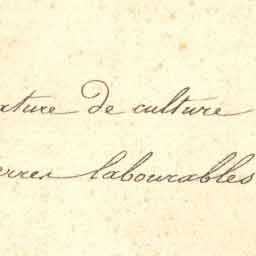 ature de culture
erres labourables